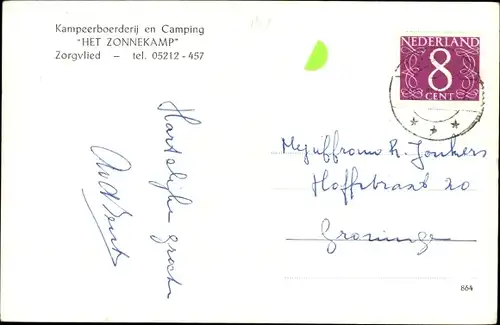 Kampeerboerderij en Camping
"HET ZONNEKAMP"
Zorgvlied — tel. 05212 - 457
NEDERLAND
8
CENT
Hartelijke groeten
Mejuffrouw R. Jonkers
Hoffstraat 20
Groningen
864